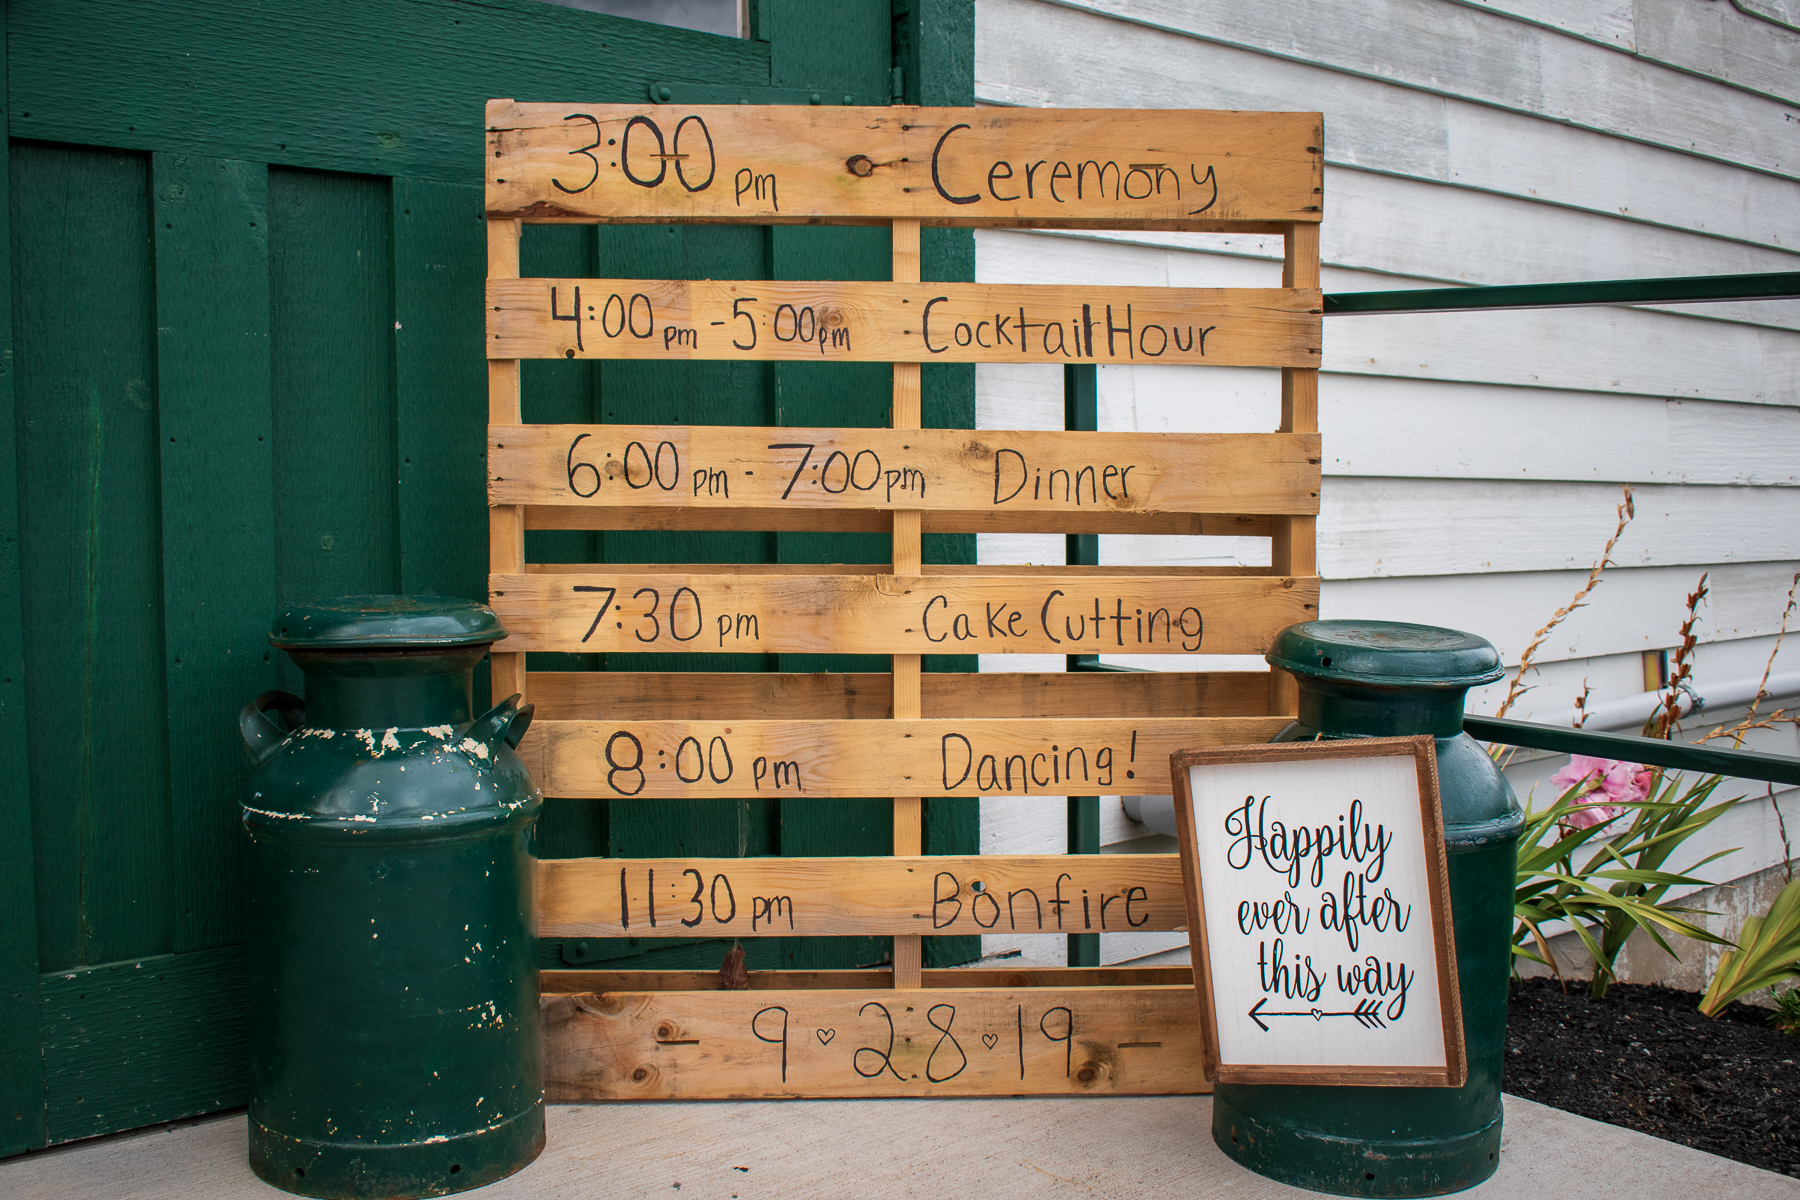 3:00 pm Ceremony
4:00 pm - 5:00 pm Cocktail Hour
6:00 pm - 7:00 pm Dinner
7:30 pm Cake Cutting
8:00 pm Dancing!
11:30 pm Bonfire
9 ♡ 28 ♡ 19
Happily
ever after
this way